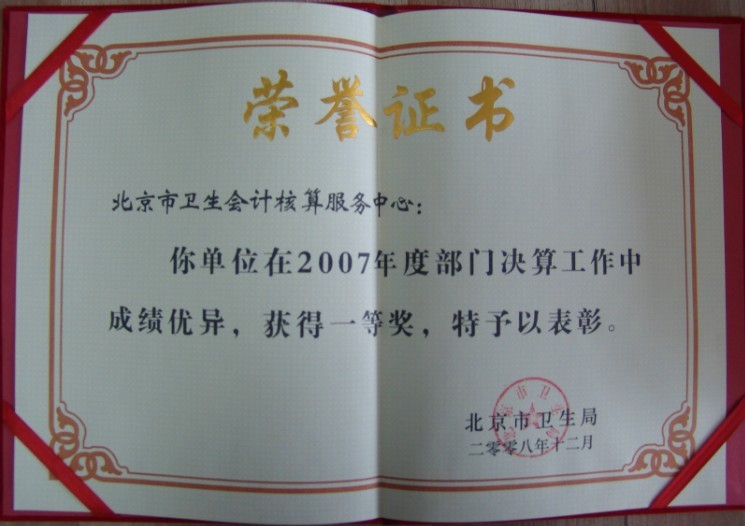 荣誉证书
北京市卫生会计核算服务中心：
你单位在2007年度部门决算工作中
成绩优异，获得一等奖，特予以表彰。
北京市卫生局
二零零八年十二月